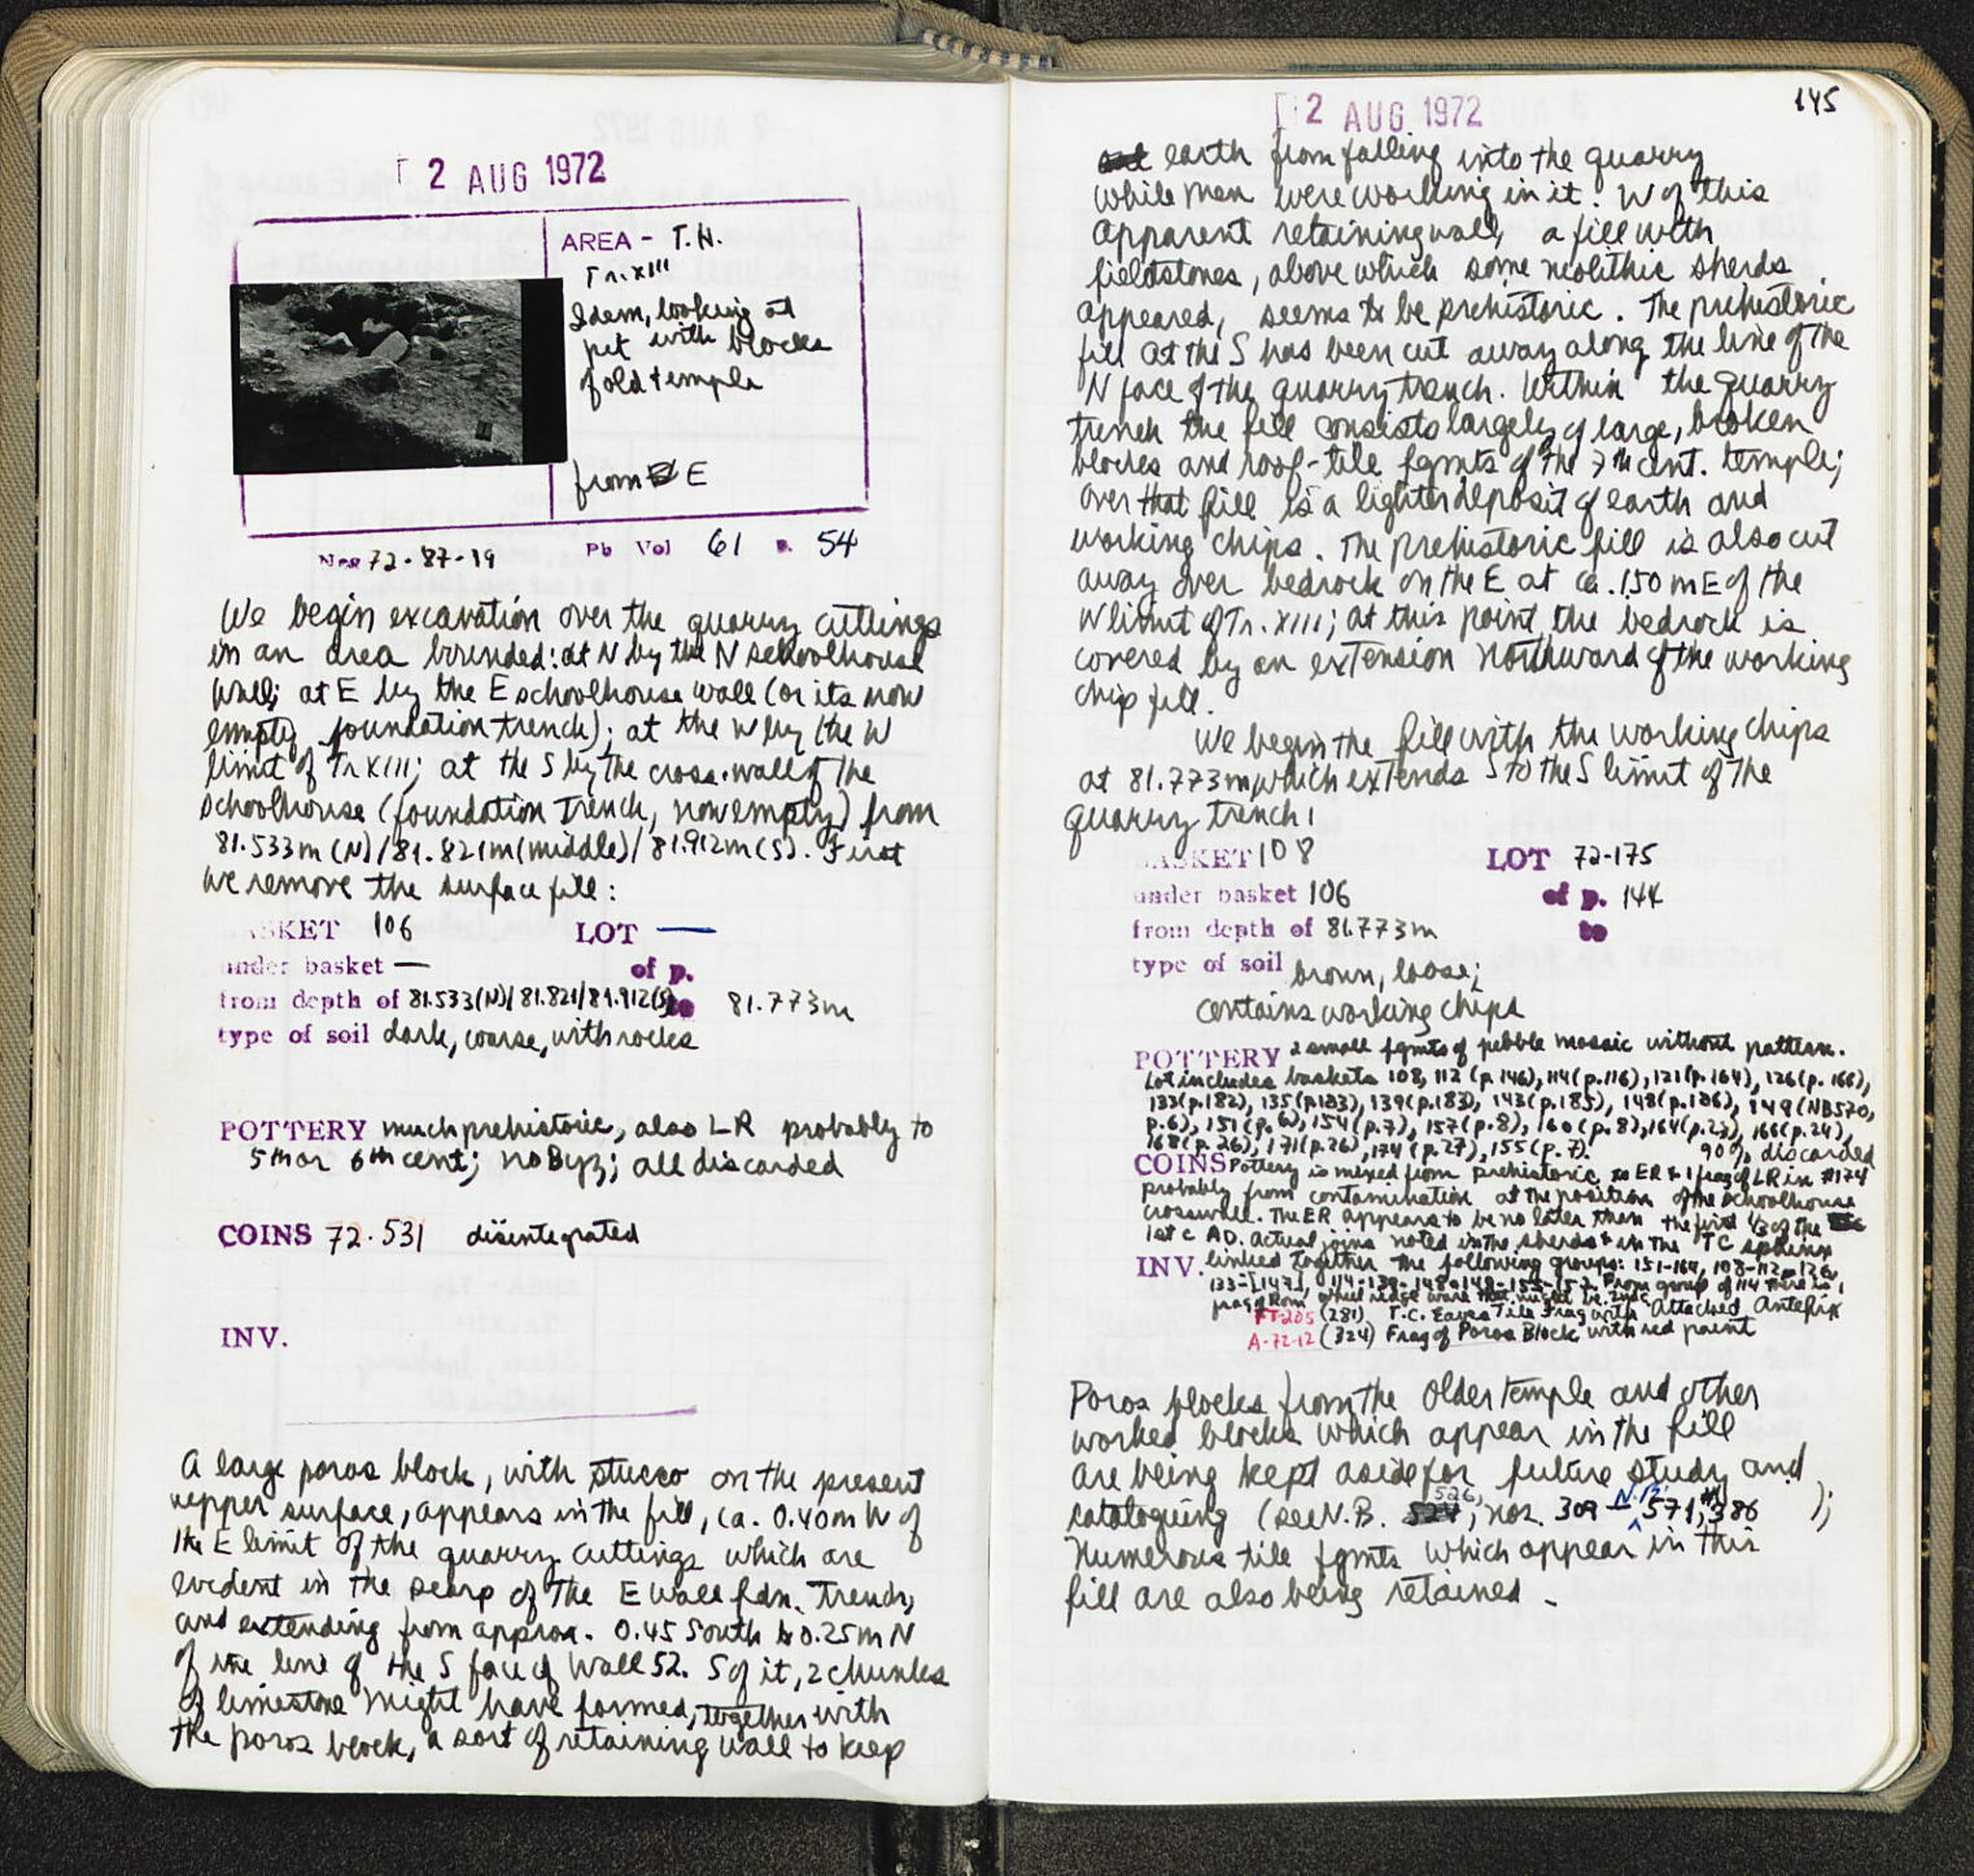 2 AUG 1972
AREA - T.N.
Tr. XIII
Idem, looking at
pit with blocks
of old temple
from E
Neg 72-87-19 Pb Vol 61 p. 54
We begin excavation over the quarry cuttings
in an area bounded: at N by the N schoolhouse
wall; at E by the E schoolhouse wall (or its now
empty foundation trench); at the W by the W
limit of Tr XIII; at the S by the cross-wall of the
schoolhouse (foundation trench, now empty) from
81.533m (N)/81.821m (middle)/81.912m (S). First
we remove the surface fill:
BASKET 106 LOT —
under basket — of p.
from depth of 81.533(N)/81.821/81.912(S) to 81.773m
type of soil dark, coarse, with rocks
POTTERY much prehistoric, also LR probably to
5th or 6th cent; no Byz; all discarded
COINS 72.531 disintegrated
INV.
A large poros block, with stucco on the present
upper surface, appears in the fill, ca. 0.40m W of
the E limit of the quarry cuttings which are
evident in the scarp of the E wall fdn. trench,
and extending from approx. 0.45 South to 0.25m N
of the line of the S face of Wall 52. S of it, 2 chunks
of limestone might have formed, together with
the poros block, a sort of retaining wall to keep
2 AUG 1972 145
earth from falling into the quarry
while men were working in it. W of this
apparent retaining wall, a fill with
fieldstones, above which some neolithic sherds
appeared, seems to be prehistoric. The prehistoric
fill at the S has been cut away along the line of the
N face of the quarry trench. Within the quarry
trench the fill consists largely of large, broken
blocks and roof-tile fgmts of the 7th cent. temple;
over that fill is a lighter deposit of earth and
working chips. The prehistoric fill is also cut
away over bedrock on the E at ca. 1.50 m E of the
W limit of Tr. XIII; at this point the bedrock is
covered by an extension northward of the working
chip fill.
We begin the fill with the working chips
at 81.773m which extends S to the S limit of the
quarry trench:
BASKET 108 LOT 72-175
under basket 106 of p. 144
from depth of 81.773m to
type of soil brown, loose;
contains working chips
POTTERY 2 small fgmts of pebble mosaic without pattern.
Lot includes baskets 108, 112 (p. 146), 114 (p. 116), 121 (p. 164), 126 (p. 168),
133 (p. 182), 135 (p. 183), 139 (p. 183), 143 (p. 185), 148 (p. 186), 149 (NB570,
p. 6), 151 (p. 6), 154 (p. 7), 157 (p. 8), 160 (p. 8), 164 (p. 23), 166 (p. 24),
168 (p. 26), 171 (p. 26), 174 (p. 27), 155 (p. 7). 90% discarded
COINS Pottery is mixed from prehistoric to ER & 1 frag of LR in #174
probably from contamination at the position of the schoolhouse
crosswall. The ER appears to be no later than the first 1/3 of the
1st c AD. Actual joins noted in the sherds & in the TC sphinx
INV. linked together the following groups: 151-164, 108-112-126,
133-[147], 114-139-148-149-155-157. From group of 114 there is 1
frag of Rom. wheel ridge ware that might be 2ndc
FT-205 (281) T.C. Eaves Tile Frag with Attached Antefix
A-72-12 (324) Frag of Poros Block with red paint
Poros blocks from the older temple and other
worked blocks which appear in the fill
are being kept aside for future study and
cataloguing (see N.B. 526, nos. 309 - N.B. 571, #386 );
Numerous tile fgmts which appear in this
fill are also being retained.